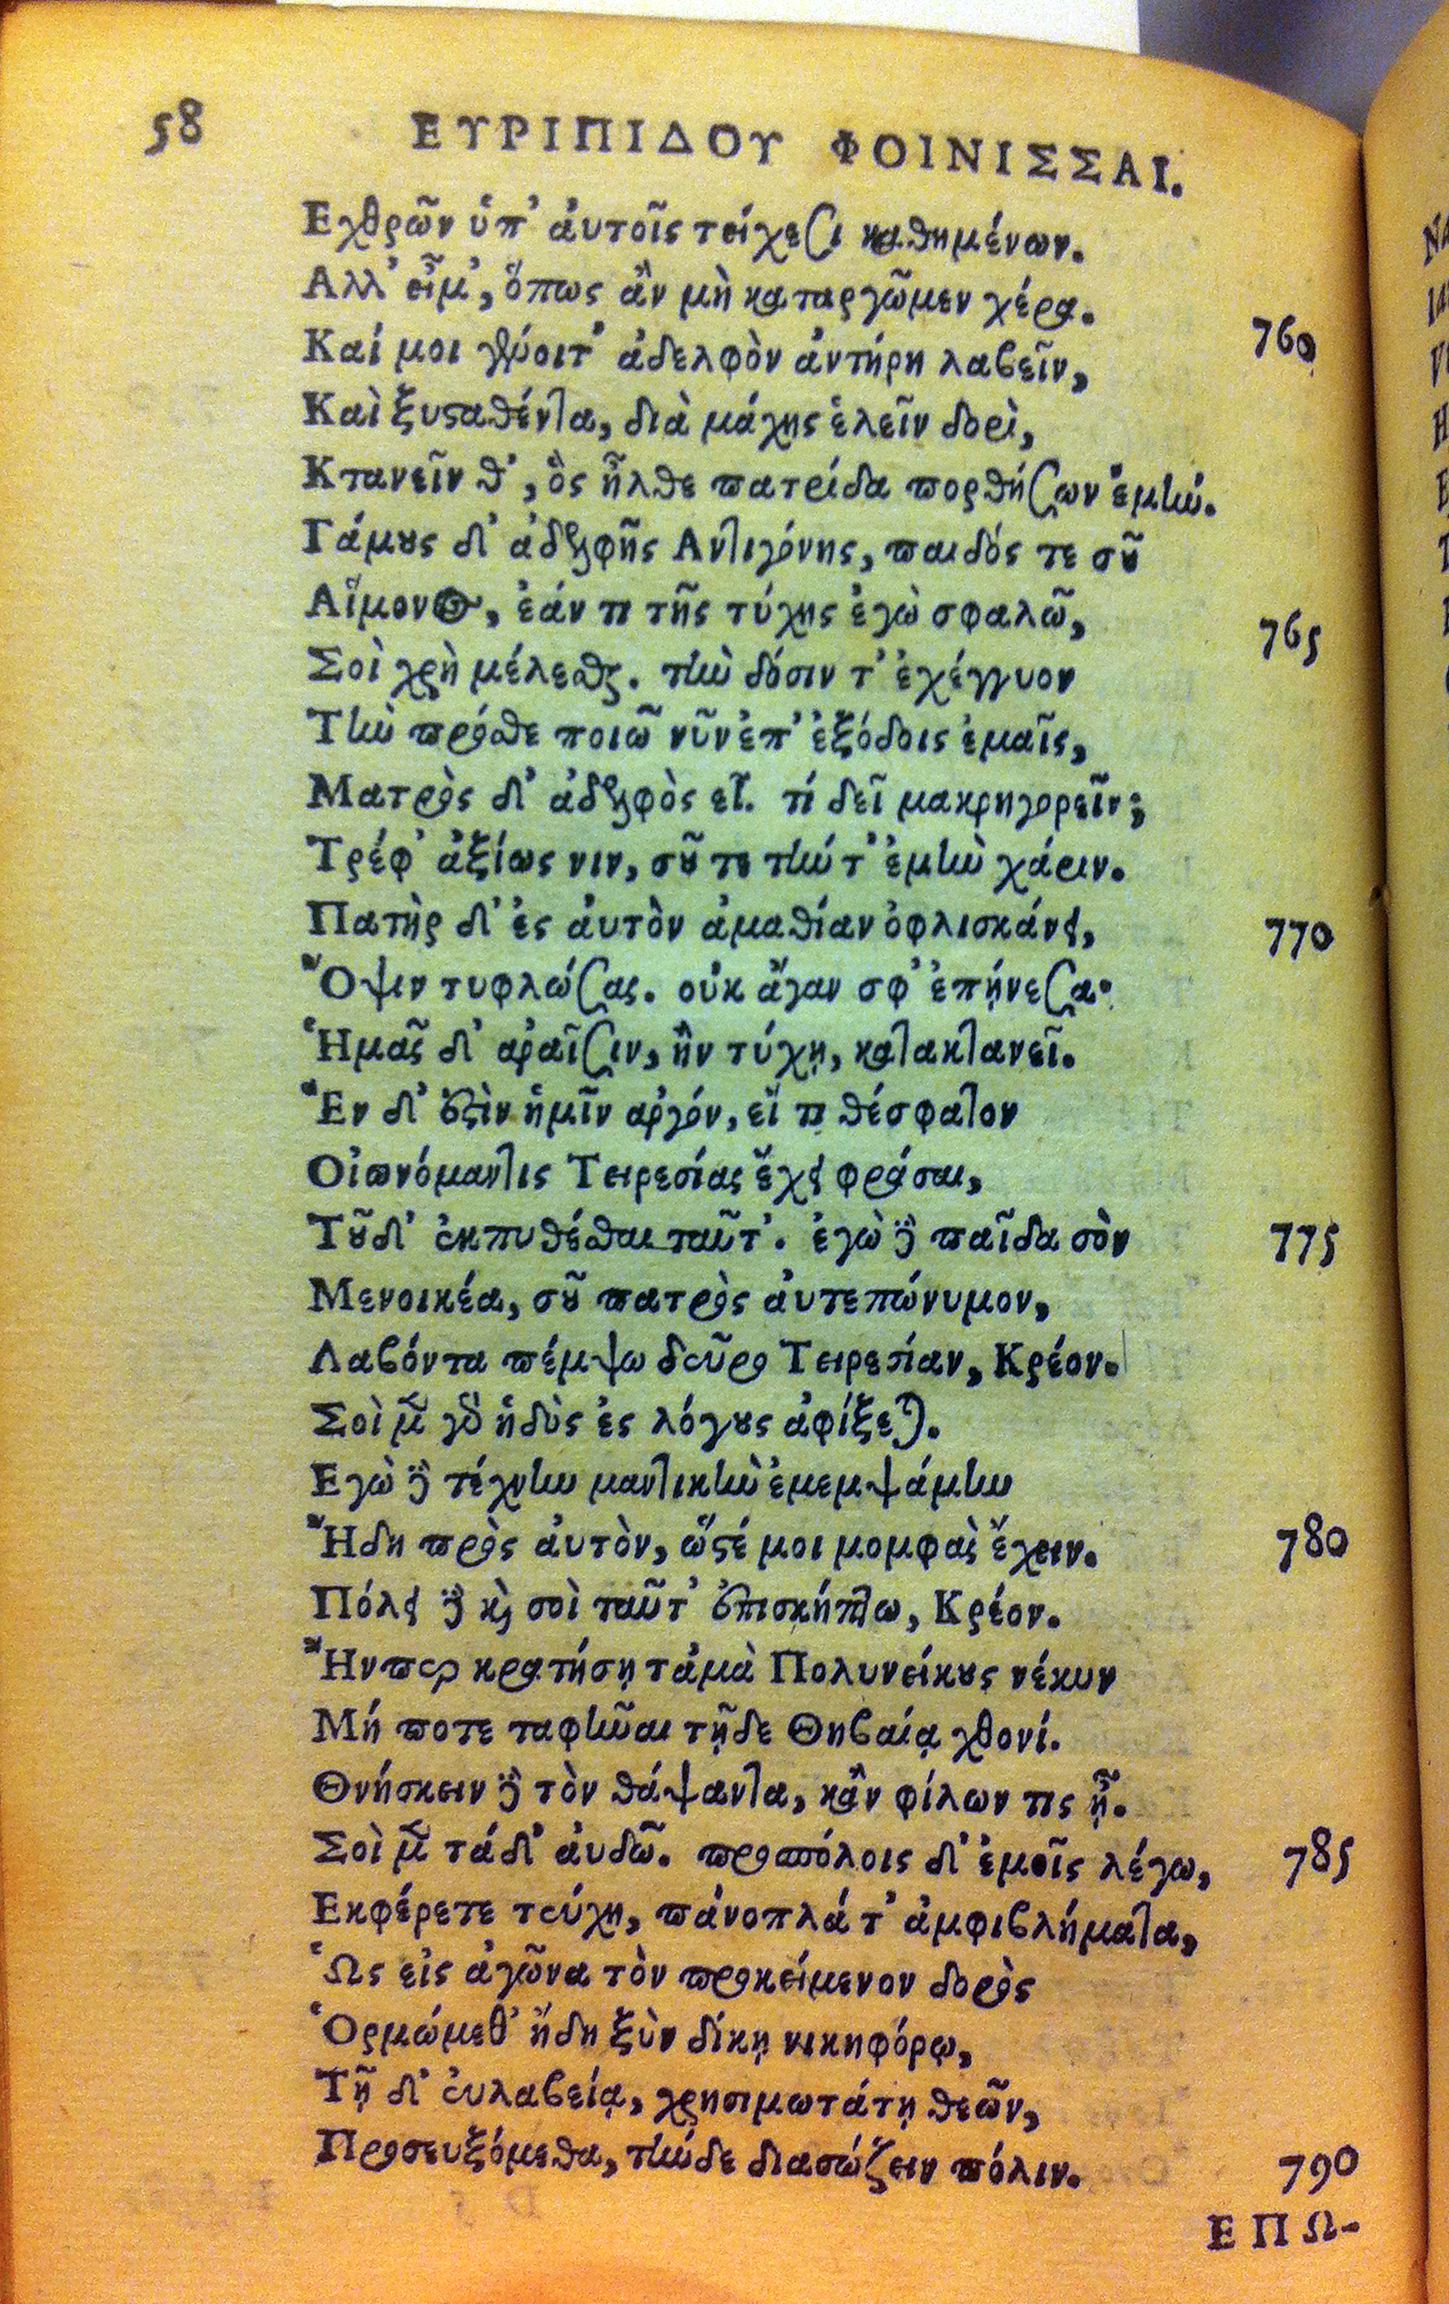 58
ΕΥΡΙΠΙΔΟΥ ΦΟΙΝΙΣΣΑΙ.
Εχθρῶν ὑπ' ἀυτοῖς τείχεσι καθημένων.
Αλλ' εἶμ', ὅπως ἂν μὴ καταργῶμεν χέρα.
760
Καί μοι γένοιτ' ἀδελφὸν ἀντήρη λαβεῖν,
Καὶ ξυσταθέντα, διὰ μάχης ἑλεῖν δορὶ,
Κτανεῖν θ', ὃς ἦλθε πατρίδα πορθήσων ἐμήν.
Γάμους δ' ἀδελφῆς Αντιγόνης, παιδός τε σοῦ
Αἵμονος, ἐάν τι τῆς τύχης ἐγὼ σφαλῶ,
765
Σοὶ χρὴ μέλεσθαι. τὴν δόσιν τ' ἐχέγγυον
Τὴν πρόσθε ποιῶ νῦν ἐπ' ἐξόδοις ἐμαῖς,
Ματρὸς δ' ἀδελφὸς εἶ. τί δεῖ μακρηγορεῖν;
Τρέφ' ἀξίως νιν, σοῦ τε τήν τ' ἐμὴν χάριν.
Πατὴρ δ' ἐς ἀυτὸν ἀμαθίαν ὀφλισκάνει,
770
Ὄψιν τυφλώσας. οὐκ ἄγαν σφ' ἐπῄνεσα·
Ἡμᾶς δ' ἀραῖσιν, ἢν τύχῃ, κατακτανεῖ.
Ἓν δ' ἐστὶν ἡμῖν ἀργόν, εἴ τι θέσφατον
Οἰωνόμαντις Τειρεσίας ἔχει φράσαι,
Τοῦδ' ἐκπυθέσθαι ταῦτ'. ἐγὼ δὲ παῖδα σὸν
775
Μενοικέα, σοῦ πατρὸς ἀυτεπώνυμον,
Λαβόντα πέμψω δεῦρο Τειρεσίαν, Κρέον.
Σοὶ μὲν γὰρ ἡδὺς ἐς λόγους ἀφίξεται.
Εγὼ δὲ τέχνην μαντικὴν ἐμεμψάμην
Ἤδη πρὸς ἀυτὸν, ὥστέ μοι μομφὰς ἔχειν.
780
Πόλει δὲ καὶ σοὶ ταῦτ' ἐπισκήπτω, Κρέον.
Ἤνπερ κρατήσῃ τἀμὰ Πολυνείκους νέκυν
Μή ποτε ταφῆναι τῇδε Θηβαίᾳ χθονί.
Θνήσκειν δὲ τὸν θάψαντα, κἂν φίλων τις ᾖ.
Σοὶ μὲν τάδ' ἀυδῶ. προσπόλοις δ' ἐμοῖς λέγω,
785
Εκφέρετε τεύχη, πάνοπλά τ' ἀμφιβλήματα,
Ὡς εἰς ἀγῶνα τὸν προκείμενον δορὸς
Ὁρμώμεθ' ἤδη ξὺν δίκῃ νικηφόρῳ,
Τῇ δ' ἐυλαβείᾳ, χρησιμωτάτῃ θεῶν,
Προσευξόμεθα, τήνδε διασώζειν πόλιν.
790
ΕΠΩ-